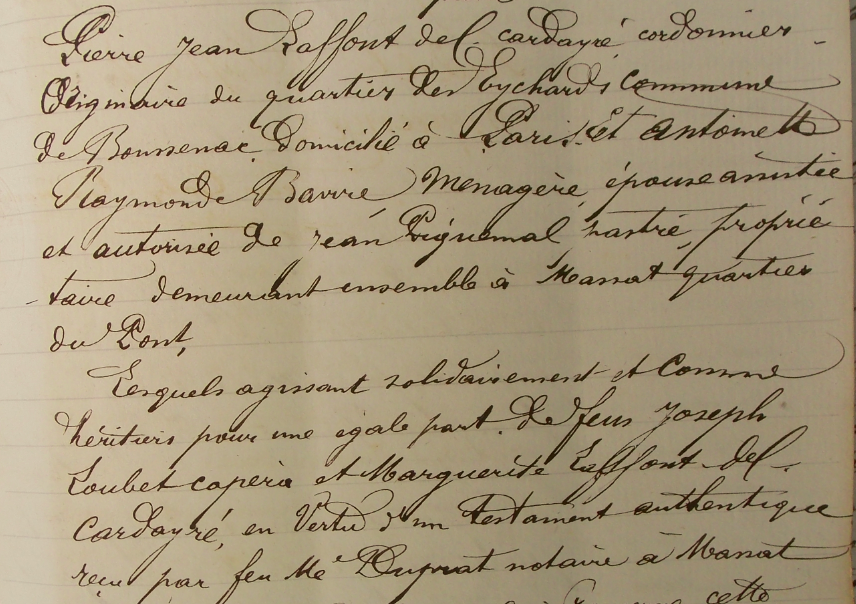 Pierre Jean Laffont del. cardayré cordonnier
Originaire du quartier des Eychards commune
de Boussenac, Domicilié à Paris. Et antoinette
Raymonde Bavire Ménagère, épouse assistée
et autorisée de jean Piquemal sastré, proprié
-taire demeurant ensemble à Massat quartier
du Pont,
Lesquels agissant solidairement et comme
héritiers pour une égale part. De feus Joseph
Loubet capéra et Marguerite Laffont-del-
cardayré, en Vertu d'un testament authentique
reçu par feu Me Duprat notaire à Massat
cette